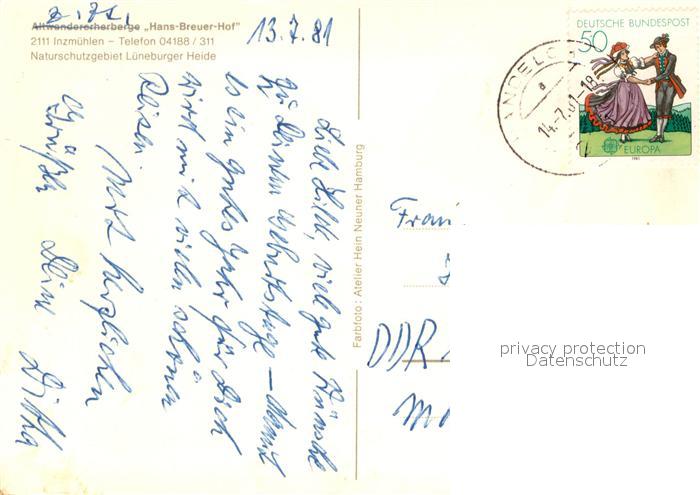 z. Zt.
Altwandererherberge „Hans-Breuer-Hof"
2111 Inzmühlen – Telefon 04188 / 311
Naturschutzgebiet Lüneburger Heide
13.7.81
Liebe viele gute Wünsche
zu Deinem Geburtstage –
ein gutes Jahr für Dich
wird mit vielen schönen
Reisen
Mit herzlichen
Grüßen Deine
Farbfoto: Atelier Hein Neuner Hamburg
DEUTSCHE BUNDESPOST
50
EUROPA
1981
14.-7.81-18
Frau
DDR
privacy protection
Datenschutz